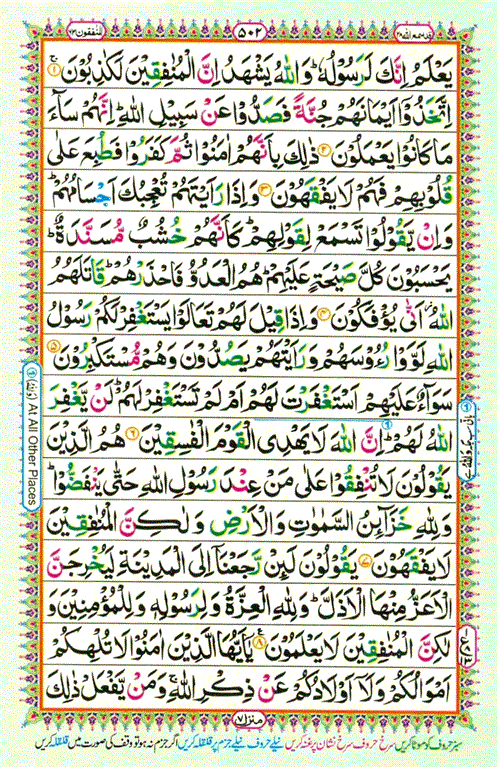 قد سمع الله ٢٨
٥٠٢
المنفقون ٦٣
يَعْلَمُ اِنَّكَ لَرَسُوْلُهٗ ؕ وَ اللّٰهُ يَشْهَدُ اِنَّ الْمُنٰفِقِيْنَ لَكٰذِبُوْنَ ۚ‏﴿۱﴾
اِتَّخَذُوْۤا اَيْمَانَهُمْ جُنَّةً فَصَدُّوْا عَنْ سَبِيْلِ اللّٰهِ ؕ اِنَّهُمْ سَآءَ
مَا كَانُوْا يَعْمَلُوْنَ ﴿۲﴾ ذٰلِكَ بِاَنَّهُمْ اٰمَنُوْا ثُمَّ كَفَرُوْا فَطُبِعَ عَلٰى
قُلُوْبِهِمْ فَهُمْ لَا يَفْقَهُوْنَ ﴿۳﴾ وَ اِذَا رَاَيْتَهُمْ تُعْجِبُكَ اَجْسَامُهُمْ ؕ
وَ اِنْ يَّقُوْلُوْا تَسْمَعْ لِقَوْلِهِمْ ؕ كَاَنَّهُمْ خُشُبٌ مُّسَنَّدَةٌ ؕ
يَحْسَبُوْنَ كُلَّ صَيْحَةٍ عَلَيْهِمْ ؕ هُمُ الْعَدُوُّ فَاحْذَرْهُمْ ؕ قَاتَلَهُمُ
اللّٰهُ ؗ اَنّٰى يُؤْفَكُوْنَ ﴿۴﴾ وَ اِذَا قِيْلَ لَهُمْ تَعَالَوْا يَسْتَغْفِرْ لَكُمْ رَسُوْلُ
اللّٰهِ لَوَّوْا رُءُوْسَهُمْ وَ رَاَيْتَهُمْ يَصُدُّوْنَ وَ هُمْ مُّسْتَكْبِرُوْنَ ﴿۵﴾
سَوَآءٌ عَلَيْهِمْ اَسْتَغْفَرْتَ لَهُمْ اَمْ لَمْ تَسْتَغْفِرْ لَهُمْ ؕ لَنْ يَّغْفِرَ
اللّٰهُ لَهُمْ ؕ اِنَّ اللّٰهَ لَا يَهْدِى الْقَوْمَ الْفٰسِقِيْنَ ﴿۶﴾ هُمُ الَّذِيْنَ
يَقُوْلُوْنَ لَا تُنْفِقُوْا عَلٰى مَنْ عِنْدَ رَسُوْلِ اللّٰهِ حَتّٰى يَنْفَضُّوْا ؕ
وَ لِلّٰهِ خَزَآئِنُ السَّمٰوٰتِ وَ الْاَرْضِ وَ لٰكِنَّ الْمُنٰفِقِيْنَ
لَا يَفْقَهُوْنَ ﴿۷﴾ يَقُوْلُوْنَ لَئِنْ رَّجَعْنَاۤ اِلَى الْمَدِيْنَةِ لَيُخْرِجَنَّ
الْاَعَزُّ مِنْهَا الْاَذَلَّ ؕ وَ لِلّٰهِ الْعِزَّةُ وَ لِرَسُوْلِهٖ وَ لِلْمُؤْمِنِيْنَ وَ
لٰكِنَّ الْمُنٰفِقِيْنَ لَا يَعْلَمُوْنَ ﴿۸﴾ يٰۤاَيُّهَا الَّذِيْنَ اٰمَنُوْا لَا تُلْهِكُمْ
اَمْوَالُكُمْ وَ لَاۤ اَوْلَادُكُمْ عَنْ ذِكْرِ اللّٰهِ ۚ وَ مَنْ يَّفْعَلْ ذٰلِكَ
At All Other Places
منزل ٧
سبز حروف کو موٹا کریں سرخ حروف سرخ نشان پر غنہ کریں نیلے حروف نیلے جزم پر قلقلہ کریں اگر جزم نہ ہو تو وقف کی صورت میں قلقلہ کریں